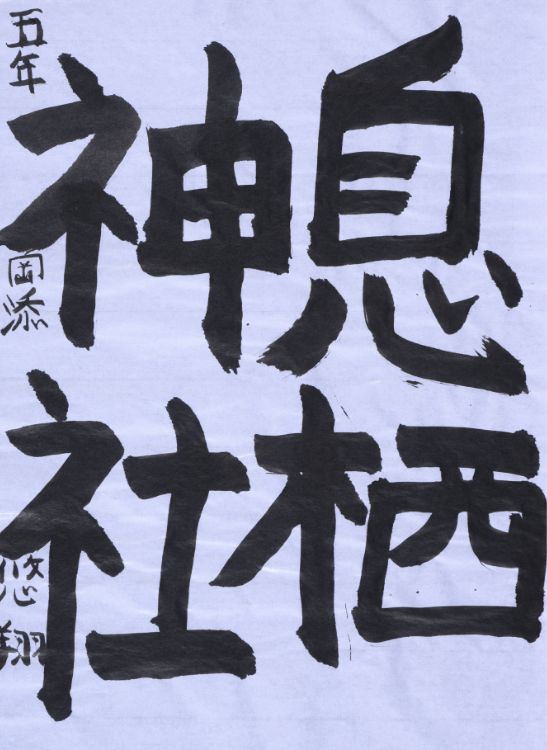 息栖
神社
五年 岡添 悠翔